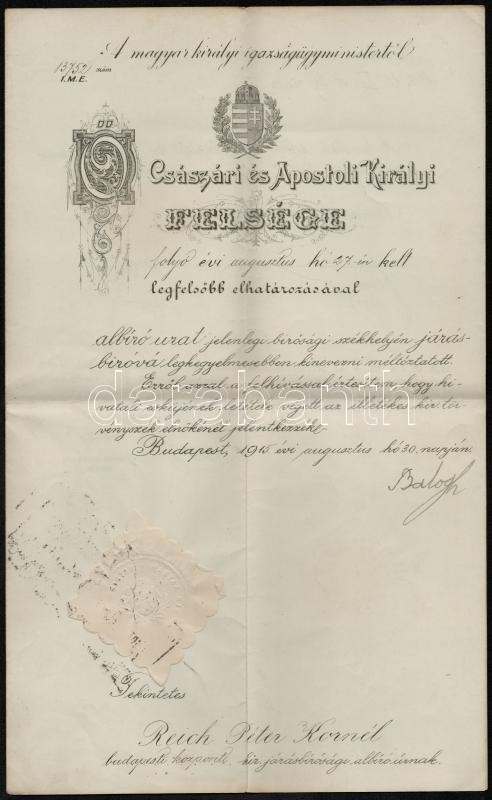 A magyar királyi igazságügyministertől
13752 szám
I.M.E.
Ő Császári és Apostoli Királyi
FELSÉGE
folyó évi augusztus hó 27-én kelt
legfelsőbb elhatározásával
albíró urat jelenlegi bírósági székhelyén járás-
bíróvá legkegyelmesebben kinevezni méltóztatott.
Erről azzal a felhívással értesítem, hogy hi-
vatali esküjének letétele végett az illetékes kir. tör-
vényszék elnökénél jelentkezzék.
Budapest, 1915. évi augusztus hó 30. napján.
Balogh
darabanth
Tekintetes
Reich Péter Kornél
budapesti központi kir. járásbírósági albíró úrnak.